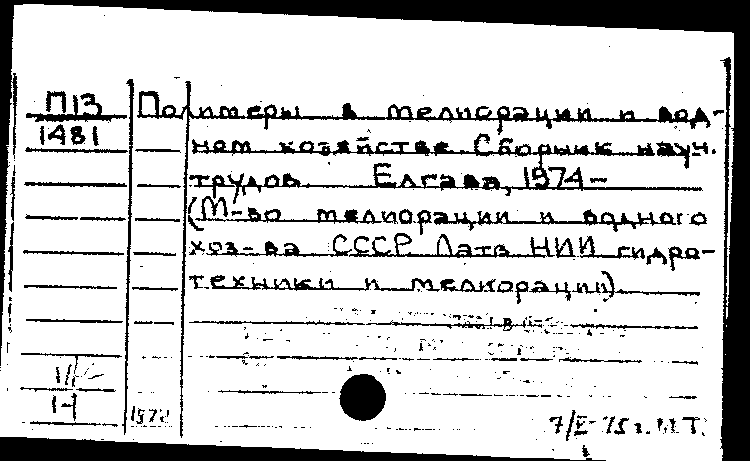 П13
1481
Полимеры в мелиорации и вод-
ном хозяйстве. Сборник науч.
трудов. Елгава, 1974-
(М-во мелиорации и водного
хоз-ва СССР. Латв НИИ гидро-
техники и мелиорации).
1-1
1972
7/II-75 г. М.Т.